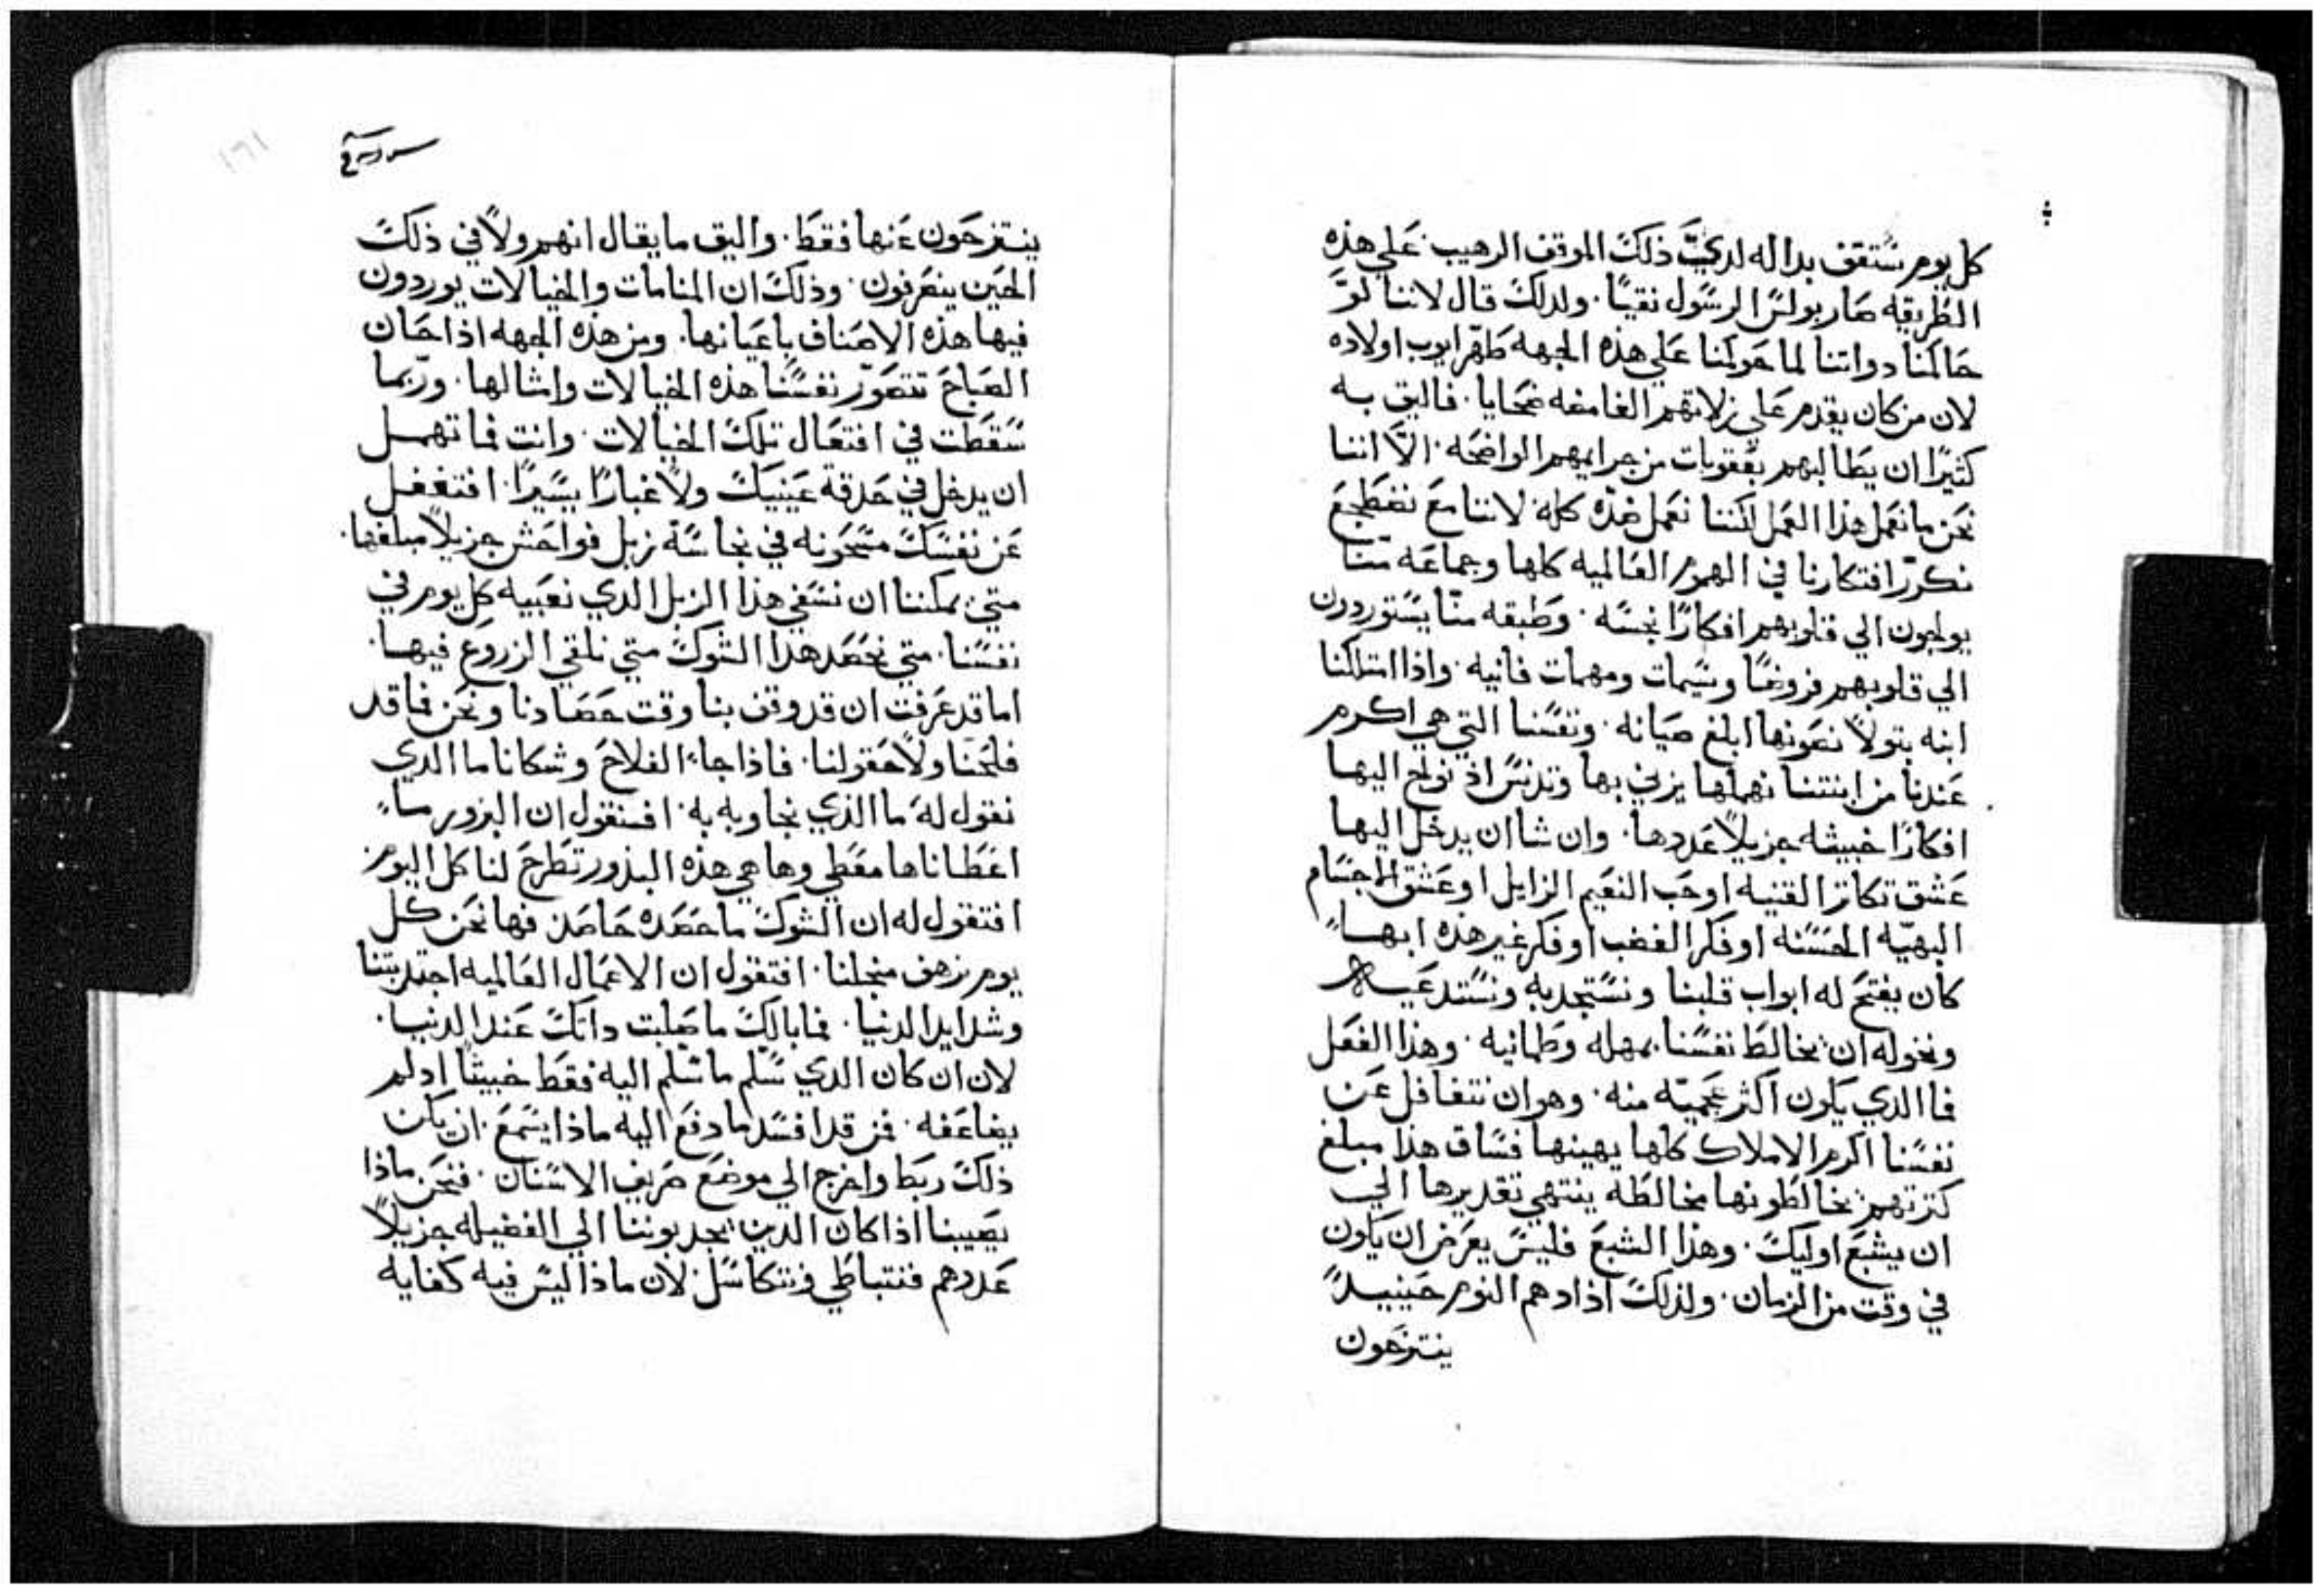 كل يوم ستقف بداله لديَّ ذلك الموقف الرهيب. علي هذه
الطريقه صار بولس الرسول نقيًا. ولدلك قال لاننا لوَّ
حاكمنا دواتنا لما حوكمنا علي هذه الجهه طهّر ايوب اولاده
لان من كان يقدم علي زلاتهم الغامضه ضحايا. فاليق به
كثيرًا ان يطالبهم بعقوبات من جرايمهم الواضحه. الاَّ اننا
نحن ما نعمل هذا العمل لكننا نعمل ضدّه كله لاننا مع نضطجع
نكرّر افتكارنا في الهموم العالميه كلها وجماعه منّا
يولجون الي قلوبهم افكارًا نجسه. وطبقه منّا يستوردون
الي قلوبهم فروضًا وسيمات ومهمات فانيه. واذا امتلكنا
ابنه بتولاً نصونها ابلغ صيانه. ونفسنا التي هي اكرم
عندنا من ابنتنا نهملها يزني بها وتدنس اذ نولج اليها
افكارًا خبيثه جزيلاً عددها. وان شا ان يدخل اليها
عشق تكاثر القنيه او حب النعيم الزايل او عشق الاجسام
البهيّه الحسنه او فكر الغضب او فكر غير هذه ايها
كان يفتح له ابواب قلبنا ونستجدبه ونستدعيه
ونخوله ان يخالط نفسنا بمهله وطمانيه. وهذا الفعل
فما الدي يكون اكثر عجميّه منه. وهو ان نتغافل عن
نفسنا اكرم الاملاك كلها يهينها فساق هذا مبلغ
كثرتهم يخالطونها مخالطه ينتهي تقديرها الي
ان يشبع اوليك. وهذا الشبع فليس يعرض ان يكون
في وقت من الزمان. ولذلك اذا دهم النوم حينيدً
ينتزحون
ينتزحون عنها فقط. واليق ما يقال انهم ولاً في ذلك
الحين ينصرفون. وذلك ان المنامات والخيالات يوردون
فيها هذه الاصناف باعيانها. ومن هذه الجهه اذا حان
الصباح تتصوّر نفسنا هذه الخيالات وامثالها. وربّما
سقطت في افتعال تلك الخيالات. وانت فما تهمل
ان يدخل في حدقة عينيك ولاً غبارًا يسيرًا. افتغفل
عن نفسك مسحونه في نجاسة زبل فواحش جزيلاً مبلغها.
متي يمكننا ان نسفي هذا الزبل الدي نعبيه كل يوم في
نفسنا. متي نحصد هدا الشوك متي نلقي الزروع فيها.
اما قد عرفت ان قد وقف بنا وقت حصادنا ونحن فما قد
فلحنا ولاً حقولنا. فاذا جاء الفلاح وشكانا ما الدي
نقول له ما الذي نجاوبه به. افنقول ان البزور ما
اعطاناها معطي وها هي هذه البذور تطرح لنا كل اليوم
افتقول له ان الشوك ما حصده حاصد فها نحن كل
يوم نرهف منجلنا. افتقول ان الاعمال العالميه اجتدبتنا
وشدايد الدنيا. فما بالك ما صلبت داتك عند الدنيا.
لان ان كان الدي سّلم ما سّلم اليه فقط خبيثًا اد لم
يضاعفه. فمن قد افسد ما دفع اليه ماذا يسمع. ان يكن
ذلك ربط واخرج الي موضع صريف الاسنان. فنحن ماذا
يصيبنا اذا كان الدين يجدبوننا الي الفضيله جزيلاً
عددهم فنتباطي ونتكاسل لان ماذا ليس فيه كفايه